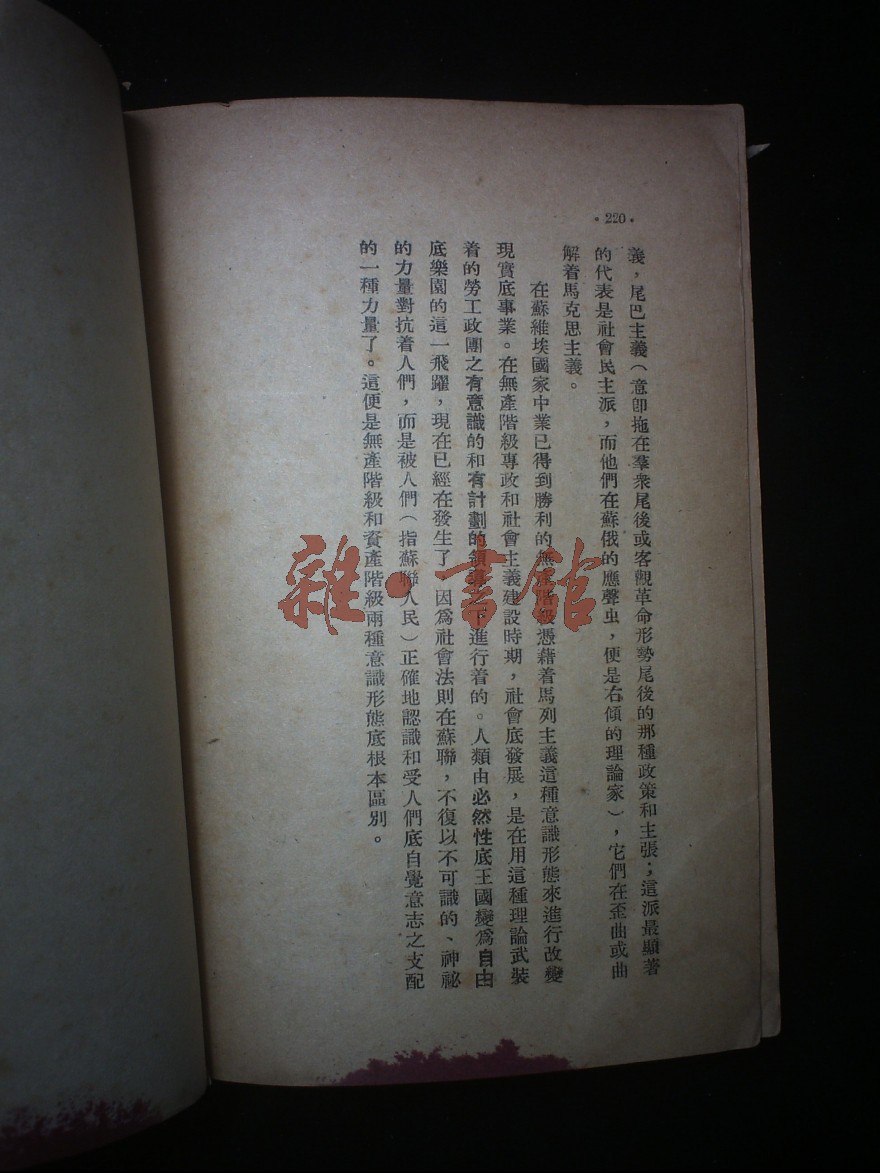 ·220·
義，尾巴主義（意卽拖在羣衆尾後或客觀革命形勢尾後的那種政策和主張；這派最顯著
的代表是社會民主派，而他們在蘇俄的應聲虫，便是右傾的理論家），它們在歪曲或曲
解着馬克思主義。
在蘇維埃國家中業已得到勝利的無產階級憑藉着馬列主義這種意識形態來進行改變
現實底事業。在無產階級專政和社會主義建設時期，社會底發展，是在用這種理論武裝
着的勞工政團之有意識的和有計劃的領導之下進行着的。人類由必然性底王國變爲自由
底樂園的這一飛躍，現在已經在發生了，因爲社會法則在蘇聯，不復以不可識的、神祕
的力量對抗着人們，而是被人們（指蘇聯人民）正確地認識和受人們底自覺意志之支配
的一種力量了。這便是無產階級和資產階級兩種意識形態底根本區別。
雜·書館